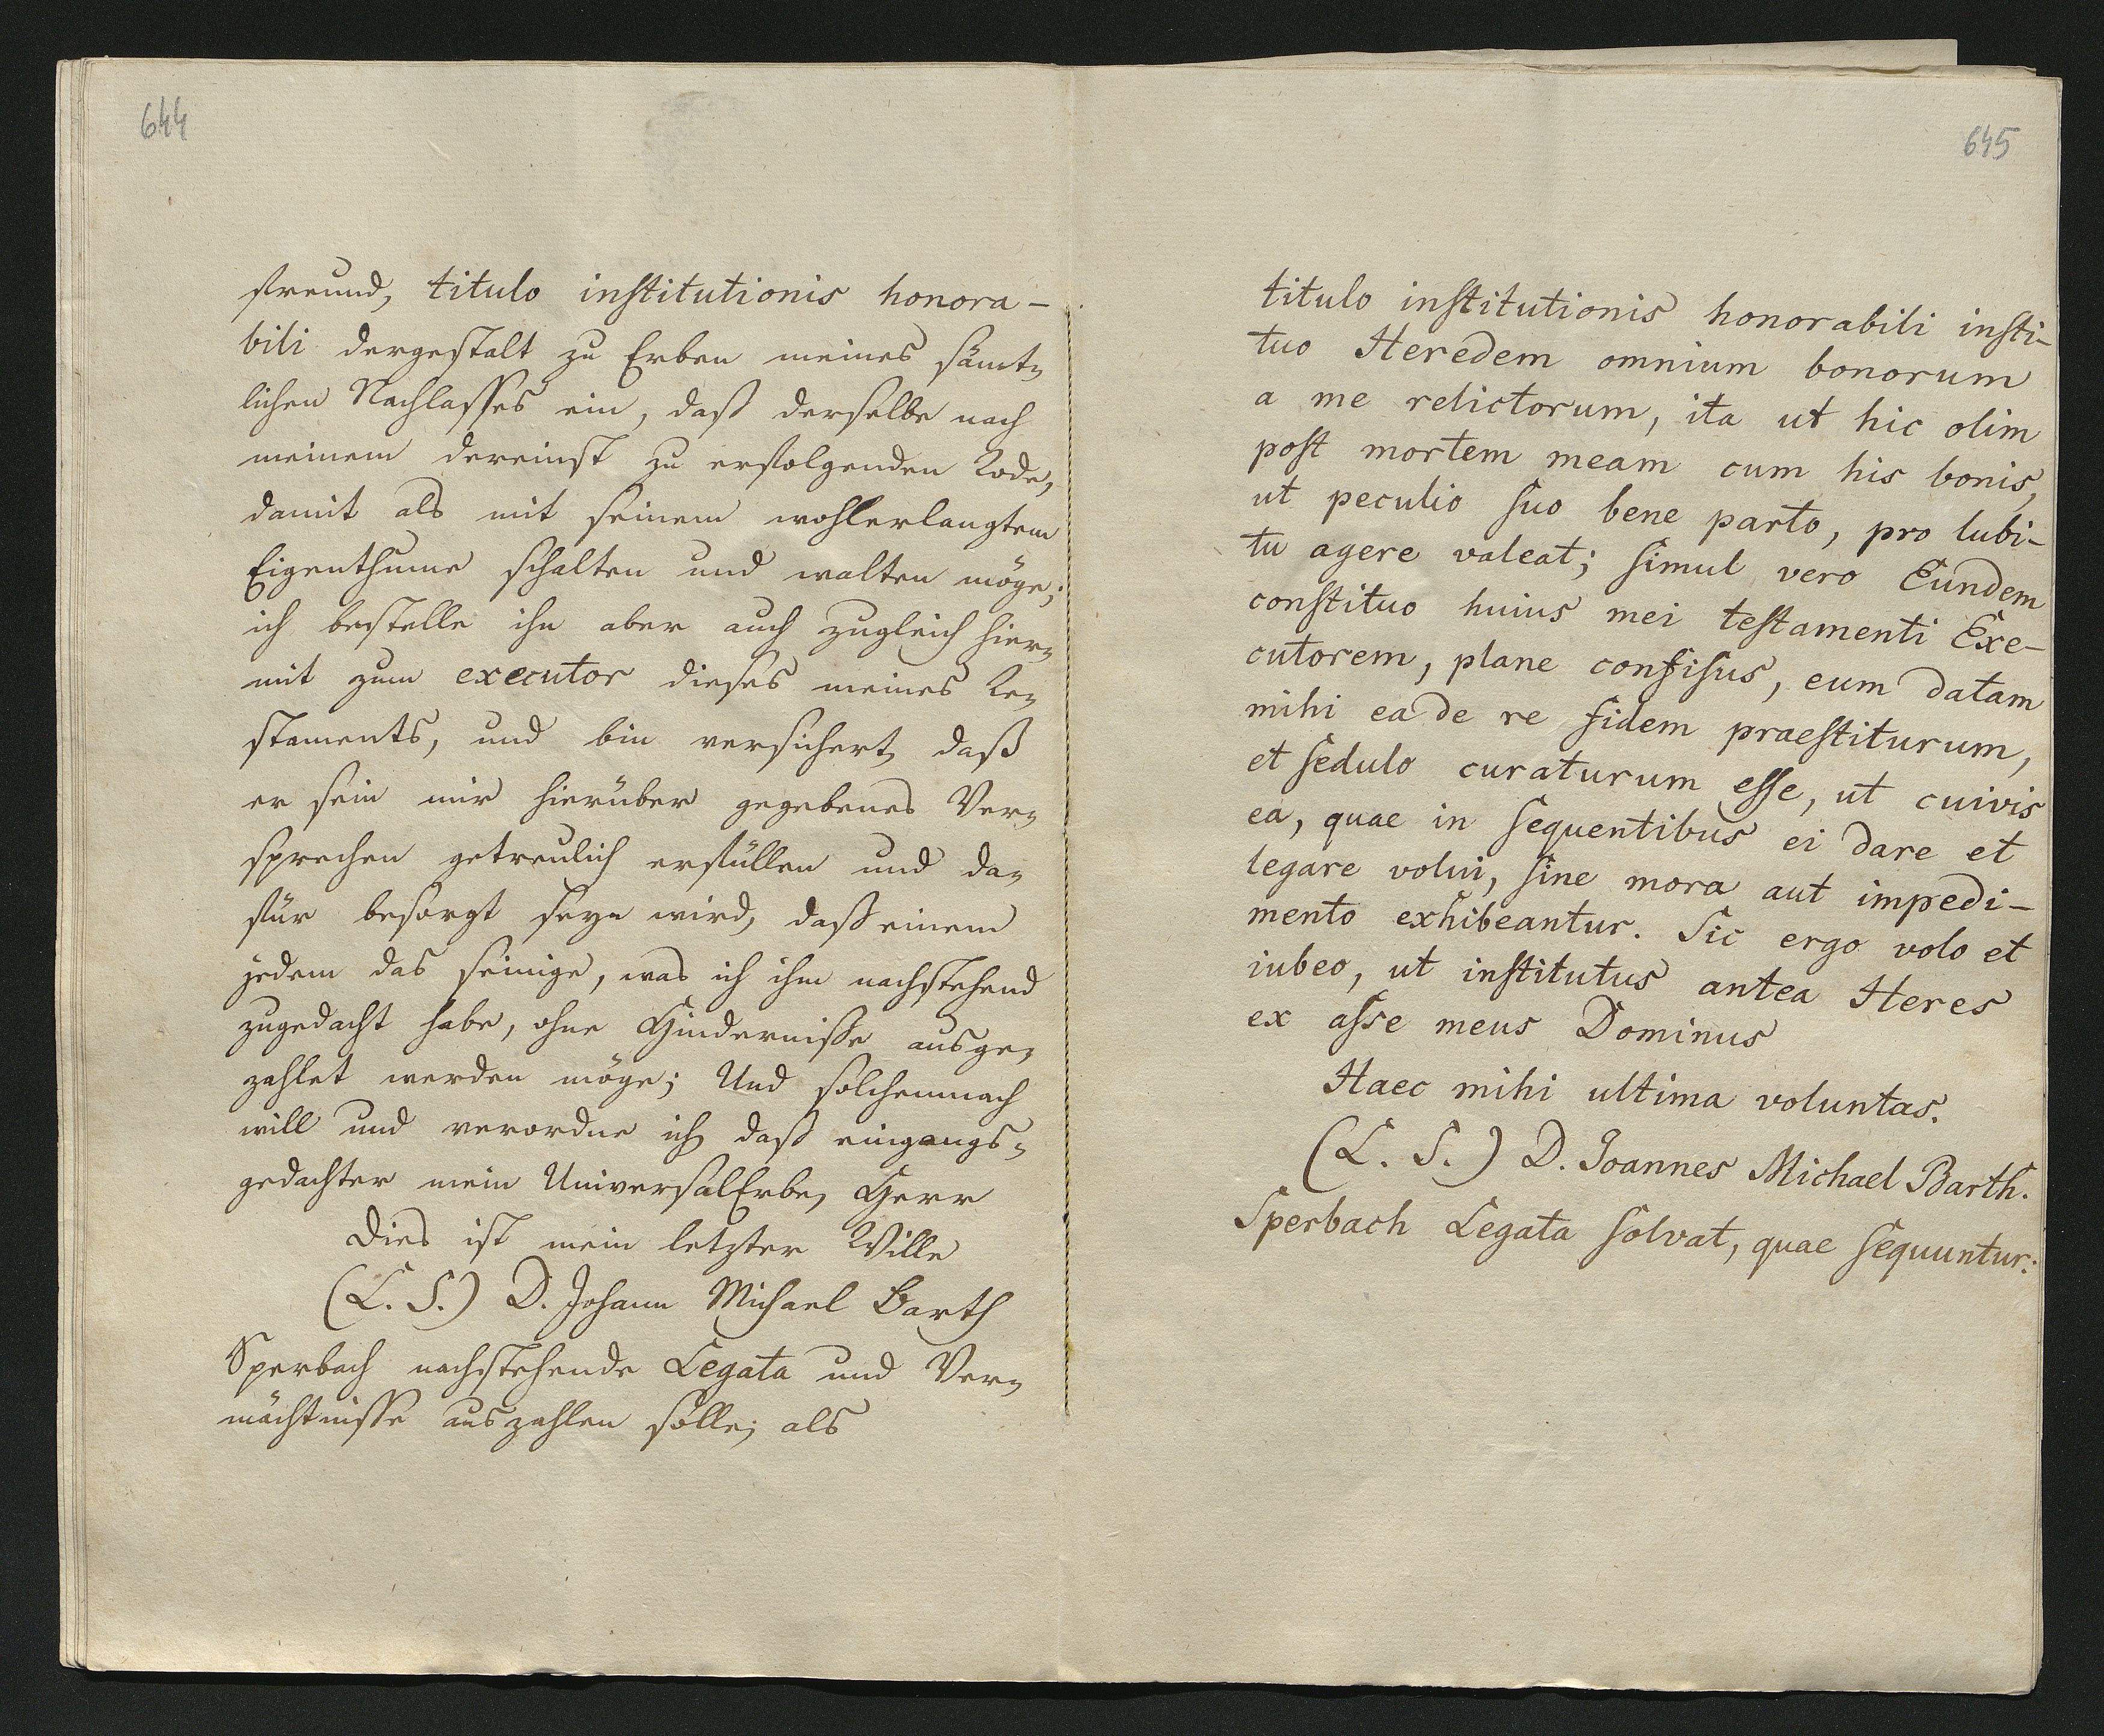 644
freund, titulo institutionis honora-
bili dergestalt zu Erben meines sämt-
lichen Nachlasses ein, daß derselbe nach
meinem dereinst zu erfolgenden Tode,
damit als mit seinem wohlerlangtem
Eigenthume schalten und walten möge;
ich bestelle ihn aber auch zugleich hier-
mit zum executor dieses meines Te-
staments, und bin versichert, daß
er sein mir hierüber gegebenes Ver-
sprechen getreulich erfüllen und da-
für besorgt seyn wird, daß einem
jedem das seinige, was ich ihm nachstehend
zugedacht habe, ohne Hindernisse ausge-
zahlet werden möge; Und solchemnach
will und verordne ich, daß eingangs-
gedachter mein UniversalErbe, Herr
Dies ist mein letzter Wille
(L. S.) D. Johann Michael Barth
Sperbach nachstehende Legata und Ver-
mächtnisse auszahlen solle; als
645
titulo institutionis honorabili insti-
tuo Heredem omnium bonorum
a me relictorum, ita ut hic olim
post mortem meam cum his bonis,
ut peculio suo bene parto, pro lubi-
tu agere valeat; simul vero Eundem
constituo huius mei testamenti Exe-
cutorem, plane confisus, eum datam
mihi ea de re fidem praestiturum,
et sedulo curaturum esse, ut cuivis
ea, quae in sequentibus ei dare et
legare volui, sine mora aut impedi-
mento exhibeantur. Sic ergo volo et
iubeo, ut institutus antea Heres
ex asse meus Dominus
Haec mihi ultima voluntas.
(L. S.) D. Joannes Michael Barth.
Sperbach Legata solvat, quae sequuntur: